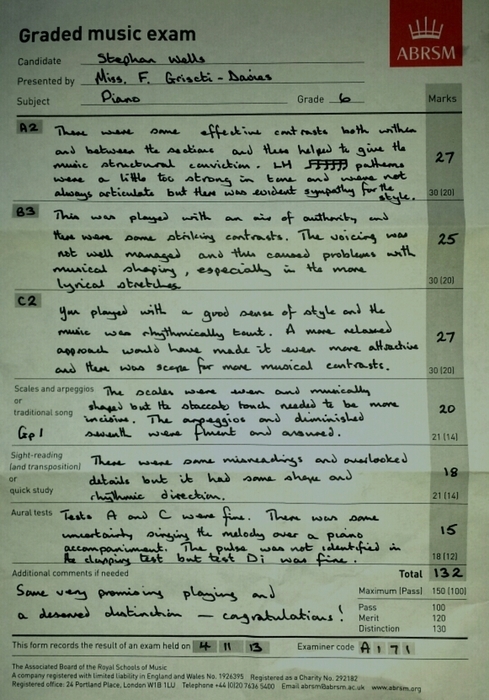 Graded music exam
ABRSM
Candidate Stephan Wells
Presented by Miss. F. Griseti - Davies
Subject Piano Grade 6 Marks
A2 There were some effective contrasts both within
and between the sections and these helped to give the
music structural conviction. LH patterns
were a little too strong in tone and were not
always articulate but there was evident sympathy for the
style.
27
30 (20)
B3 This was played with an air of authority and
there were some striking contrasts. The voicing was
not well managed and this caused problems with
musical shaping, especially in the more
lyrical stretches.
25
30 (20)
C2 You played with a good sense of style and the
music was rhythmically taut. A more relaxed
approach would have made it even more attractive
and there was scope for more musical contrasts.
27
30 (20)
Scales and arpeggios
or
traditional song
Gp 1
The scales were even and musically
shaped but the staccato touch needed to be more
incisive. The arpeggios and diminished
seventh were fluent and assured.
20
21 (14)
Sight-reading
(and transposition)
or
quick study
There were some misreadings and overlooked
details but it had some shape and
rhythmic direction.
18
21 (14)
Aural tests Tests A and C were fine. There was some
uncertainty singing the melody over a piano
accompaniment. The pulse was not identified in
the clapping test but test Di was fine.
15
18 (12)
Additional comments if needed
Total 132
Some very promising playing and
a deserved distinction – congratulations!
Maximum (Pass) 150 (100)
Pass 100
Merit 120
Distinction 130
This form records the result of an exam held on 4 11 13 Examiner code A 1 7 1
The Associated Board of the Royal Schools of Music
A company registered with limited liability in England and Wales No. 1926395 Registered as a Charity No. 292182
Registered office: 24 Portland Place, London W1B 1LU Telephone +44 (0)20 7636 5400 Email abrsm@abrsm.ac.uk www.abrsm.org